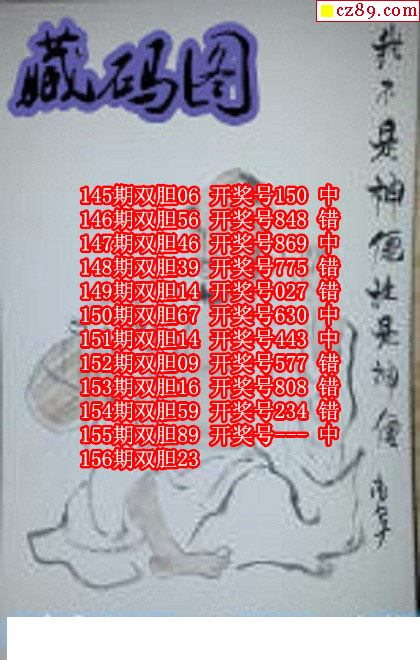 cz89.com
藏码图
我不是神仙社是神仙
145期双胆06 开奖号150 中
146期双胆56 开奖号848 错
147期双胆46 开奖号869 中
148期双胆39 开奖号775 错
149期双胆14 开奖号027 错
150期双胆67 开奖号630 中
151期双胆14 开奖号443 中
152期双胆09 开奖号577 错
153期双胆16 开奖号808 错
154期双胆59 开奖号234 错
155期双胆89 开奖号--- 中
156期双胆23